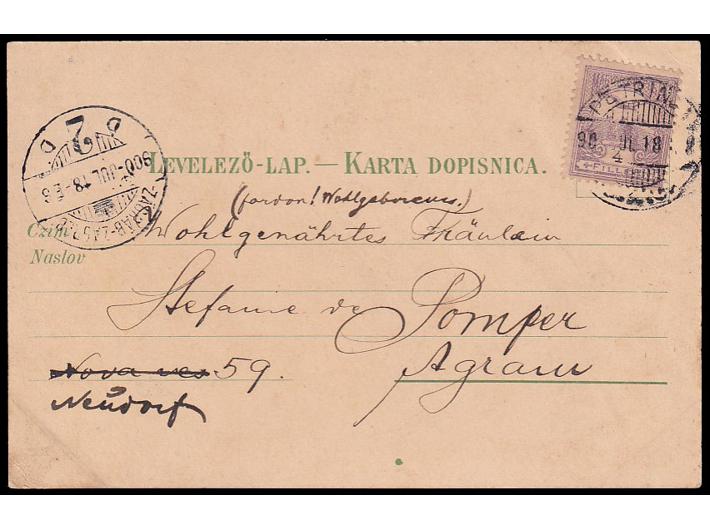 LEVELEZŐ-LAP. — KARTA DOPISNICA.
(pardon! Wohlgeborenes.)
Czim Wohlgenährtes Fräulein
Naslov
Stefanie de Pomper
Nova ves 59. Agram
Neudorf
PETRIN
90 JUL 18
4
FILLÉR
ZÁGRÁB-ZAGREB
900 JUL 18